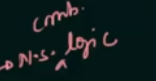 comb.
N.S. ^ logic